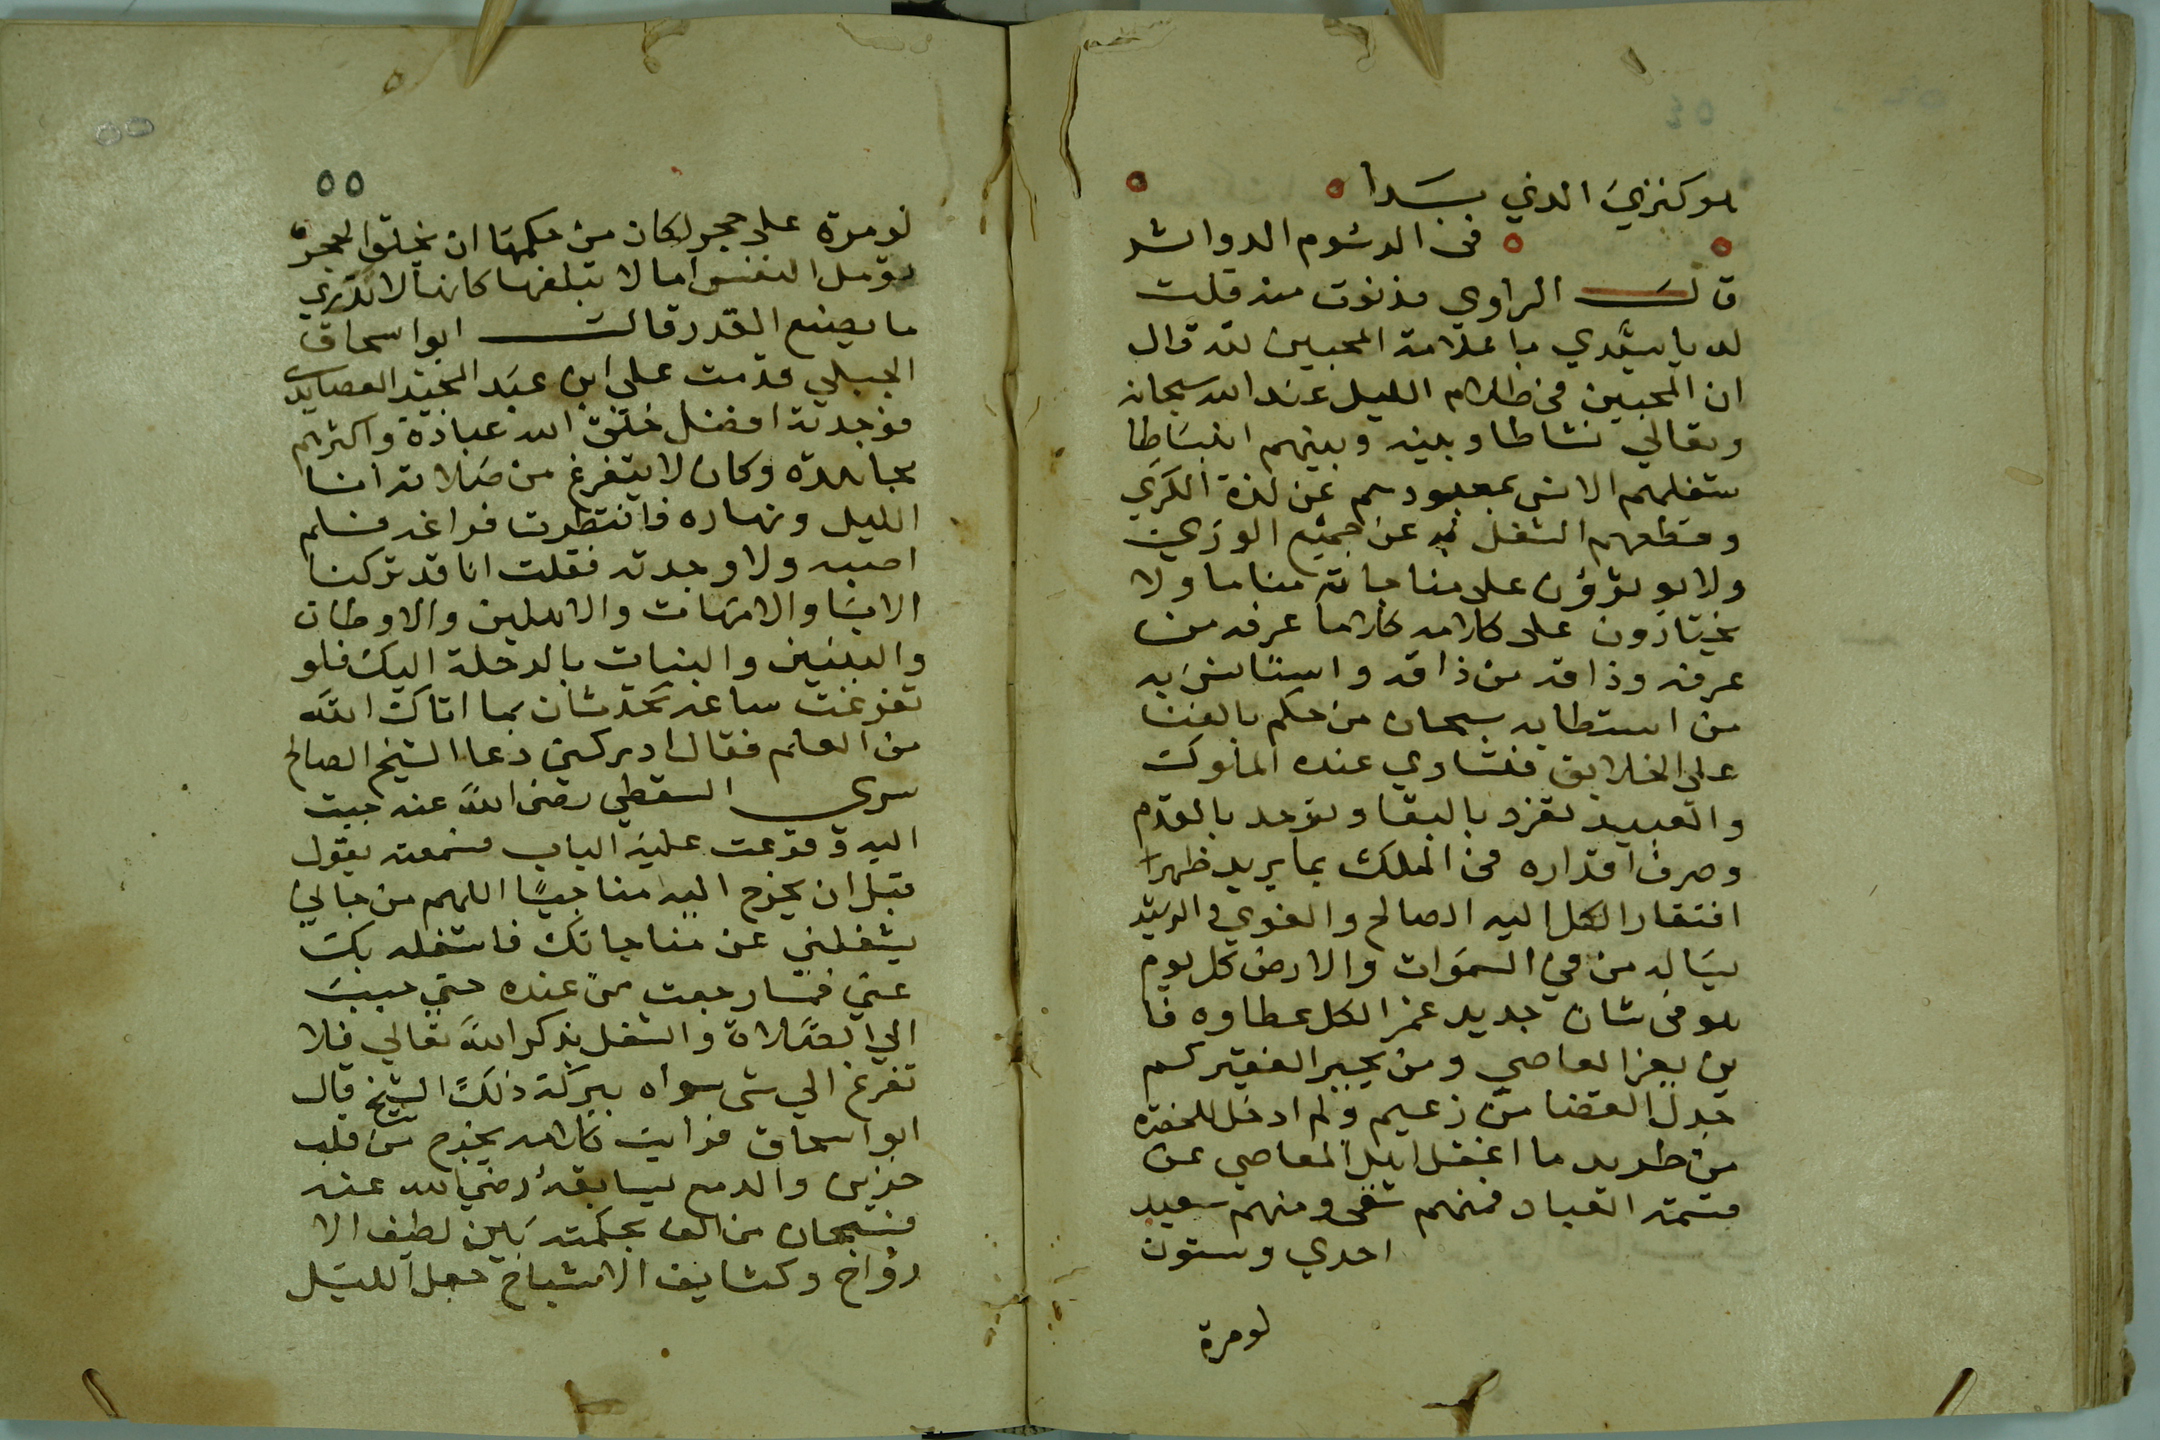 هو كنزي الذي بدا
في الرسوم الدواثر
قال الراوي فدنوت منه قلت
له يا سيدي ما علامة المحبين لله قال
ان المحبين في ظلام الليل عند الله سبحانه
وتعالي نشاطا وبينه وبينهم انبساطا
شغلهم الانس بمعبودهم عن لذة الكري
وقطعهم الشغل به عن جميع الوري
ولا يوثرون علي مناجاته مناما ولا
يختارون علي كلامه كلاما عرفه من
عرفه وذاقه من ذاقه واستانس به
من استطابه سبحان من حكم بالفنا
علي الخلايق فتساوي عنده الملوك
والعبيد تفرد بالبقا وتوحد بالقدم
وصرف اقداره في الملك بما يريد ظهرا
افتقار الكل اليه الصالح والغوي والرشيد
يساله من في السموات والارض كل يوم
هو في شان جديد عمر الكل عطاوه فا
ين يعز العاصي ومن يجير الفقير كم
جدل القضا من زعيم وكم ادخل للحضره
من طريد ما اغفل اهل المعاصي عن
قسمة العباد فمنهم شقي ومنهم سعيد
احدي وستون
لومرة
٥٥
٥٥
لو مرة علي حجر لكان من حكمها ان يخلق الحجر
تومل النفس اما لا تبلغها كانها لا تدري
ما يصنع القدر قال ابو اسحاق
الجبلي قدمت علي ابن عبد الحميد العصايدي
فوجدته افضل خلق الله عبادة واكثرهم
مجاهدة وكان لا يتفرغ من صلاته انا
الليل ونهاره فانتظرت فراغه فلم
اصبه ولا وجدته فقلت انا قد تركنا
الابا والامهات والاهلين والاوطان
والبنين والبنات بالرحلة اليك فلو
تفرغت ساعة تحدثنا بما اتاك الله
من العلم فقال ادركتني دعا الشيخ الصالح
سري السقطي رضي الله عنه جيت
اليه وقرعت عليه الباب فسمعته يقول
قبل ان يخرج اليه مناجيا اللهم من جاني
يشغلني عن مناجاتك فاشغله بك
عني فما رجعت من عنده حتي حببت
الي الصلاة والشغل بذكر الله تعالي فلا
تفرغ الي شي سواه ببركة ذلك الشيخ قال
ابو اسحاق فرايت كلامه يخرج من قلب
حزين والدمع يسابقه رضي الله عنه
فسبحان من الف بحكمته بين لطيف الا
رواح وكثايف الاشباح جعل الليل